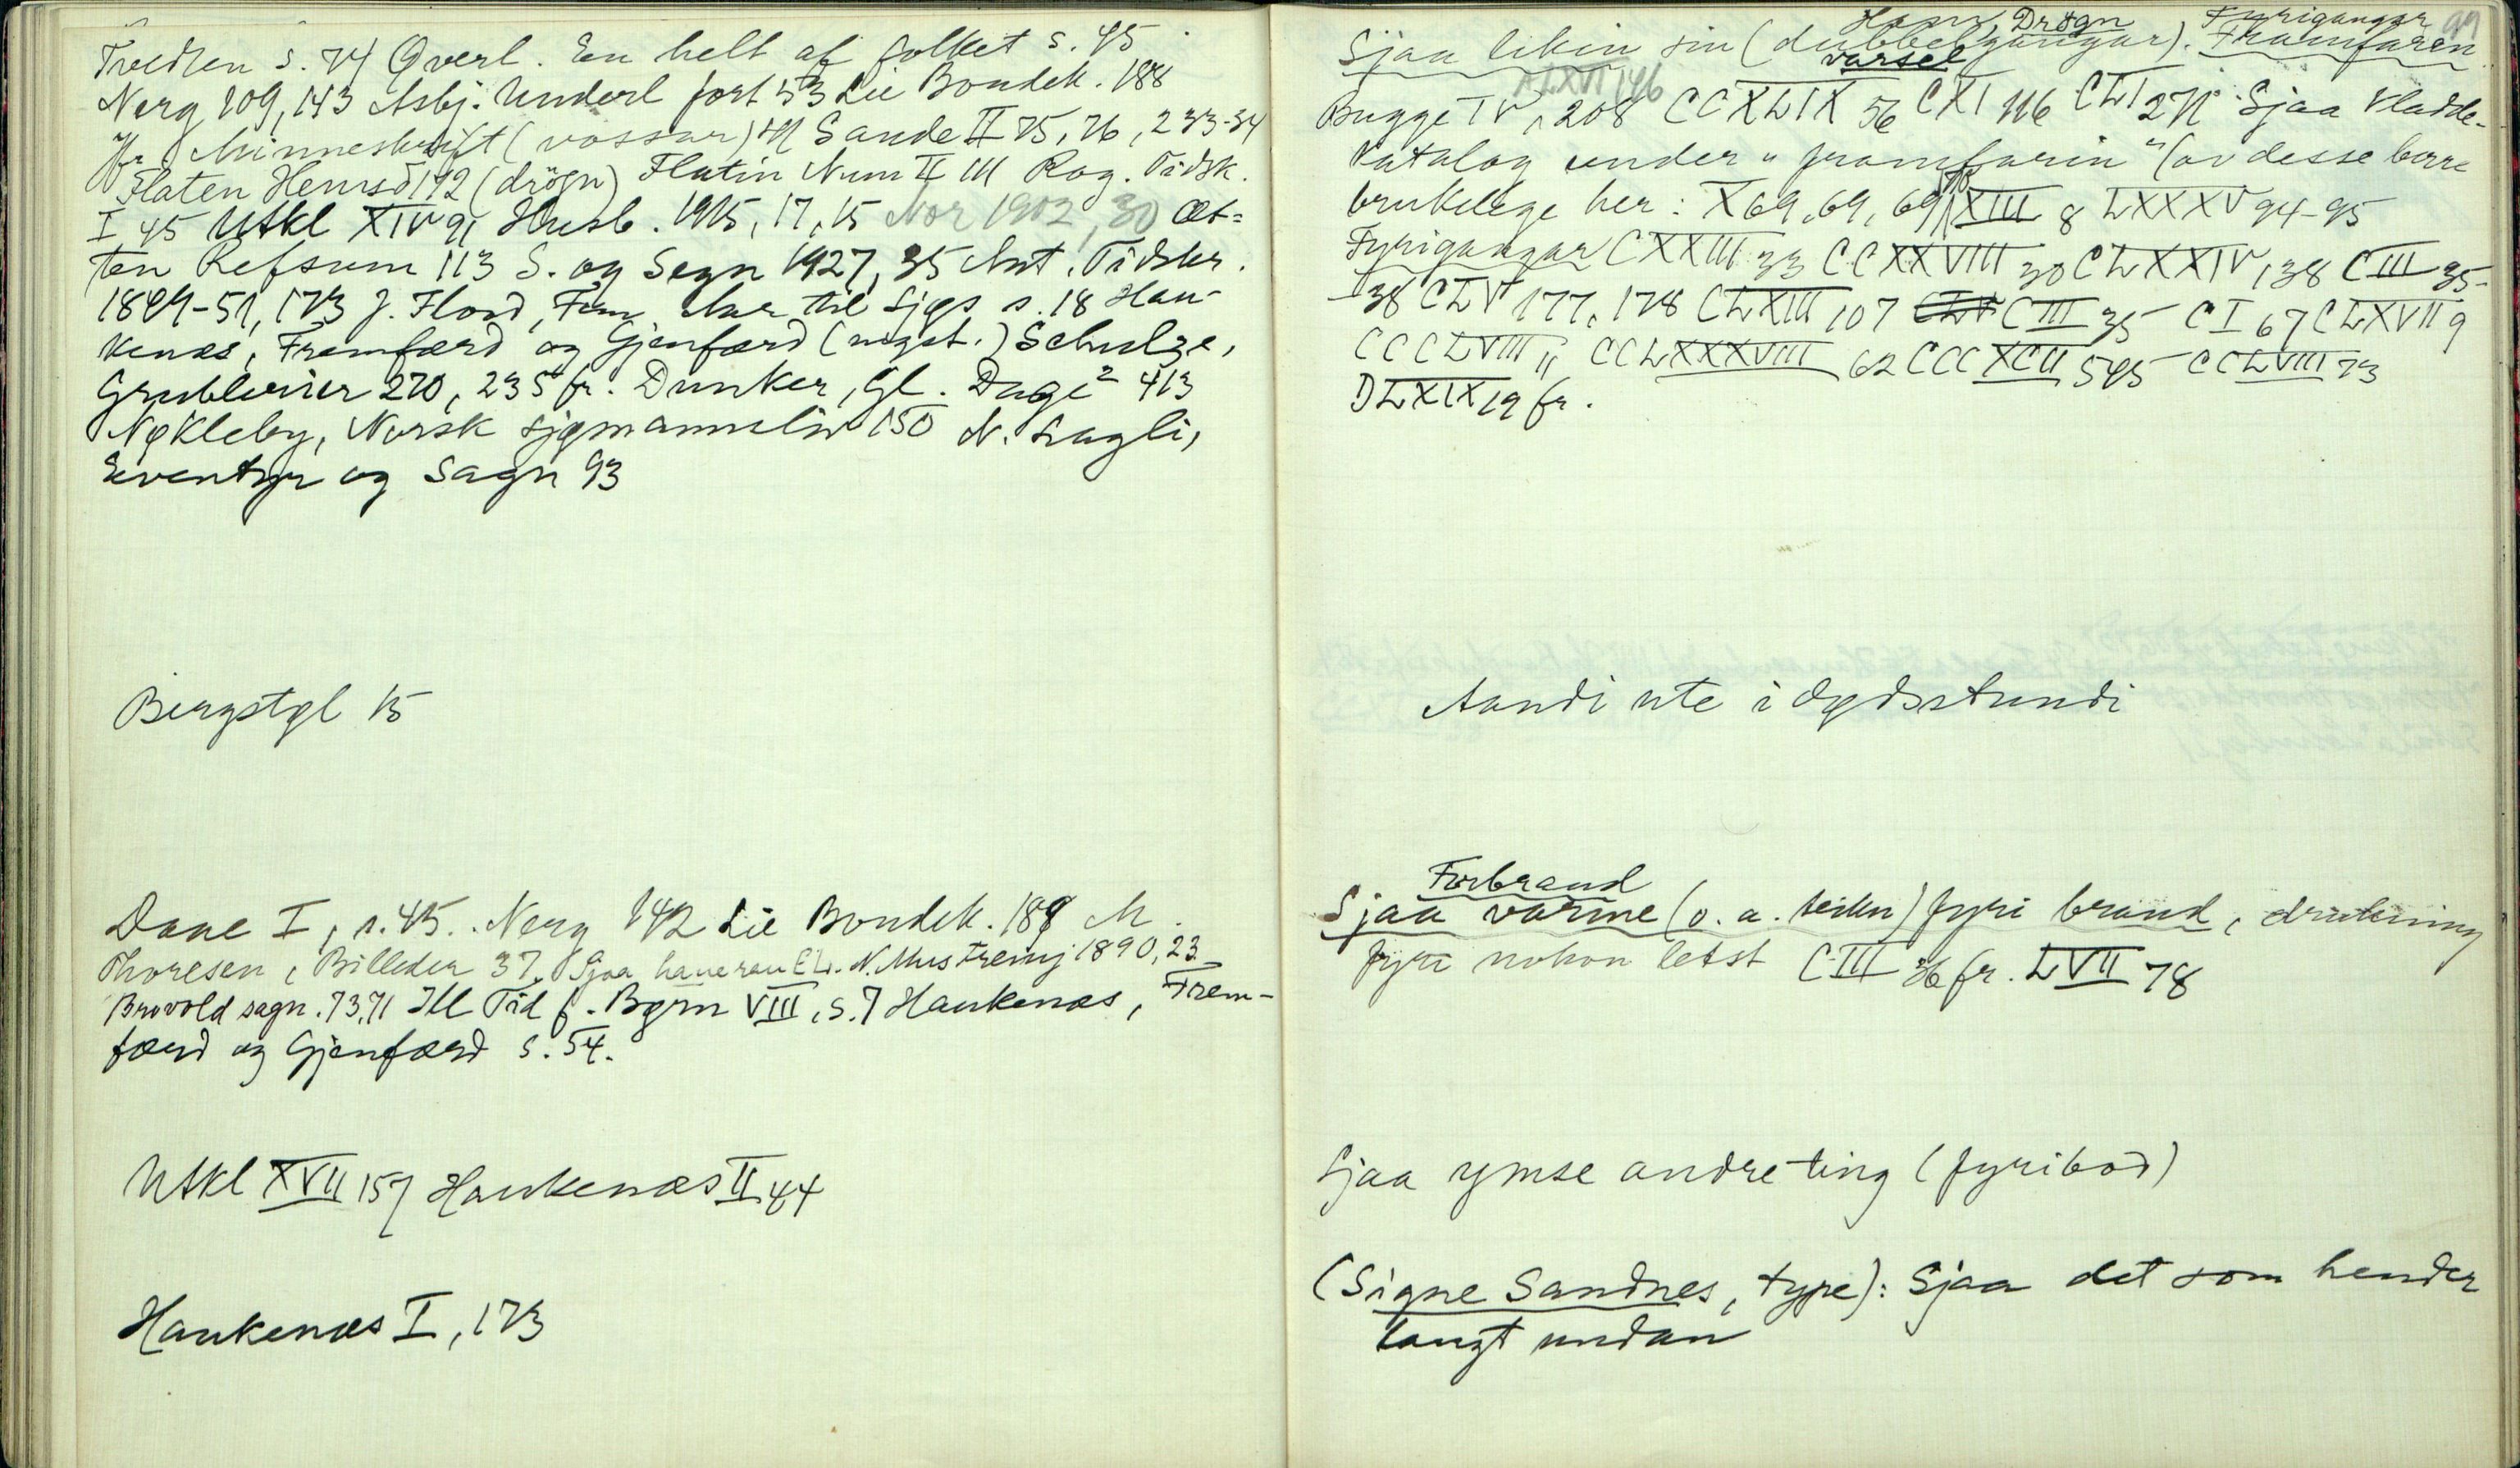 Tvedten s. 74 Qverl. En helt af folket s. 45
Nerg 209, 143 Asbj. Underl fort 53 Lie Bondek. 188
Minneskrift (vossar) Sande II 75, 76, 233-34
Flaten Hemsd 192 (drögn) Flatin Num II 111 Rog. Tidsk.
I 45 Utkl XIV 91 Husb. 1915, 17, 15 Nor 1902, 30 Æt-
ten Refsum 113 S. og Segn 1927, 35 Ant. Tidskr.
1849-51, 173 J. Flood, Fem Aar til Sjøs s. 18 Hau-
kenæs, Fremfærd og Gjenfærd (nøgst.) Schulze,
Grublerier 270, 235 fr. Dunker, Gl. Dage² 413
Nøkleby, Norsk sjømannsliv 150 N. Lagli,
Eventyr og Sagn 93
Bergstøl 15
Dane I, s. 45. Nerg 142 Lie Bondek. 188 M.
Thoresen, Billeder 37. Sjaa N. Mus Tremj 1890, 23
Brovold sagn. 73, 71 Ill Tid f. Børn VIII, s. 7 Haukenæs, Frem-
færd og Gjenfærd s. 54.
Utkl XVII 157 Haukenæs II 44
Haukenæs I, 173
99
Ham, Drögn Fyrigangar
Sjaa likin sin (dubbelgangar). Framfaren
varsel
LXVI 146
Bugge IV, 208 CCXLIX 56 CXI 116 CLI 271 Sjaa Kladde-
katalog under "framfarin" (av desse berre
brukelege her: X 69, 69, 69, XIII 8 LXXXV 94-95
Fyrigangar CXXIII 33 CCXXVIII 30 CLXXIV 138 CIII 35-
38 CLV 177, 178 CLXIII 107 CLV CIII 35 CI 67 CLXVII 9
CCCLVIII 11 CCLXXXVIII 62 CCCXCII 545 CCLVIII 73
DLXIX 19 fr.
Aandi ute i døydsstundi
Forbrand
Sjaa varme (o. a. teikn) fyri brand, drukning
fyri nokon letst CIII 36 fr. LVII 78
Sjaa ymse andre ting (fyribod)
(Signe Sandnes, type): Sjaa det som hender
langt undan